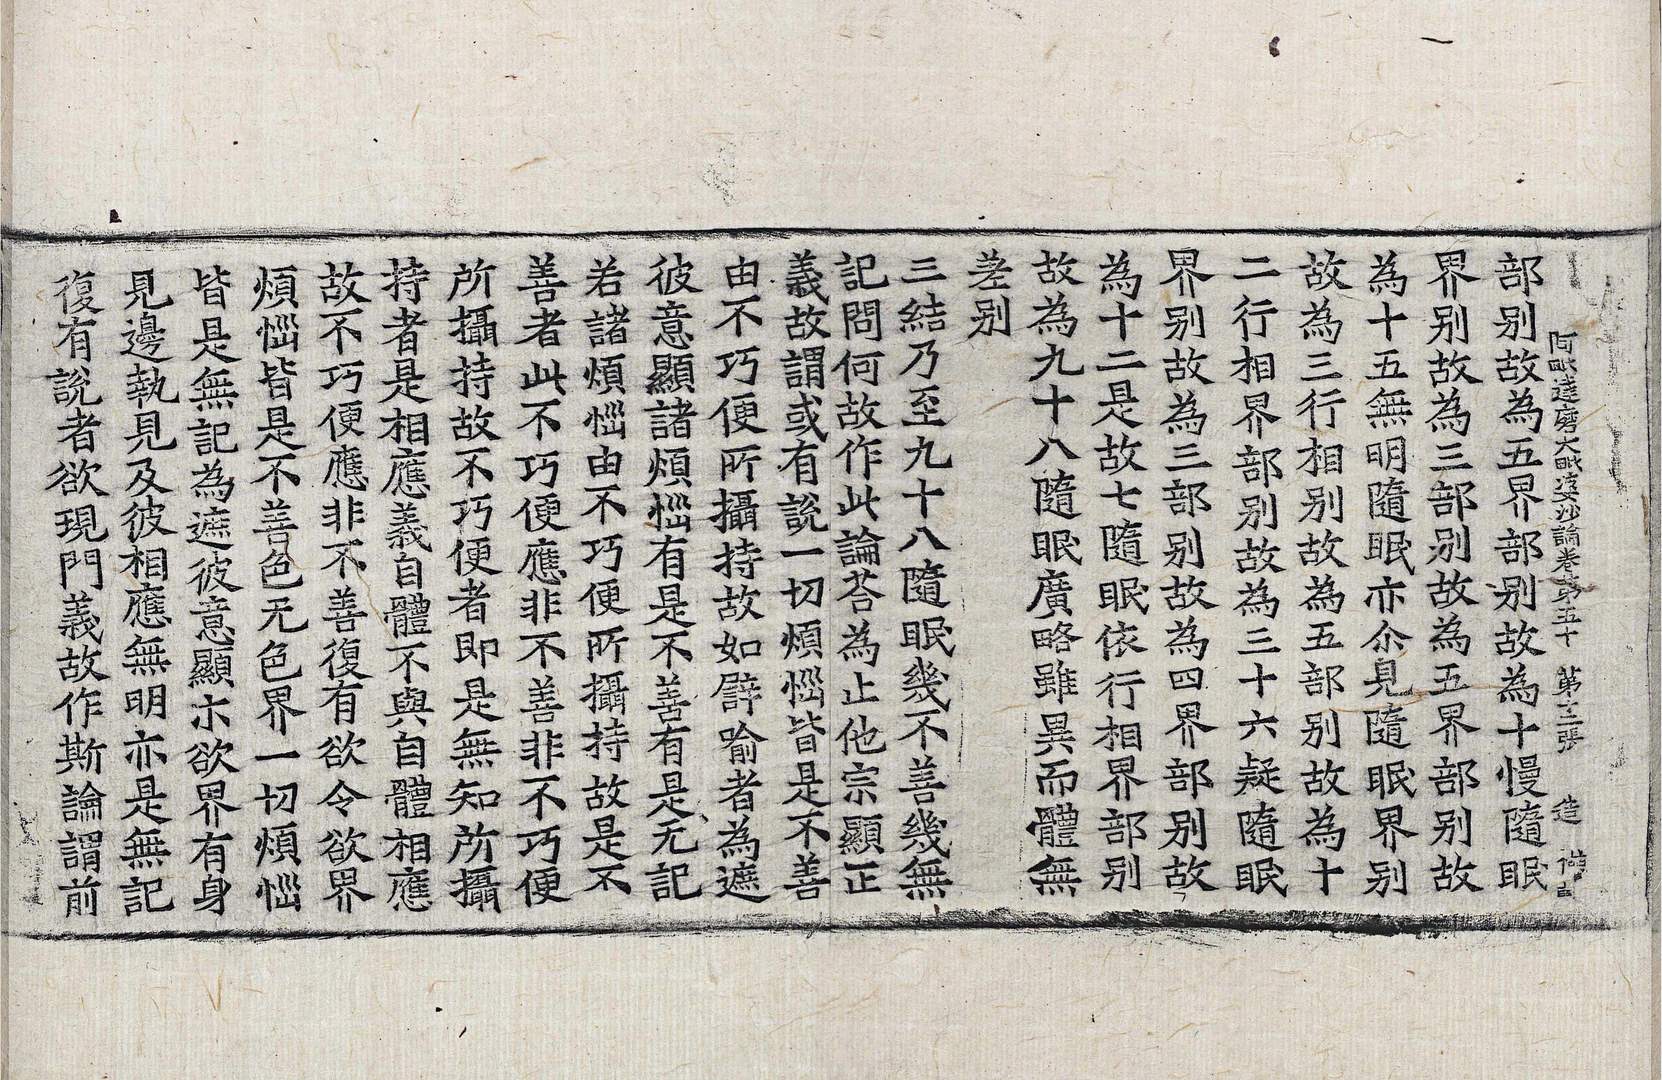 阿毗達磨大毗婆沙論卷第五十 第十二張 造
部别故為五界部别故為十慢隨眠
界别故為三部别故為五界部别故
為十五無明隨眠亦尒見隨眠界别
故為三行相别故為五部别故為十
二行相界部别故為三十六疑隨眠
界别故為三部别故為四界部别故
為十二是故七隨眠依行相界部别
故為九十八隨眠廣略雖異而體無
差别
三結乃至九十八隨眠幾不善幾無
記問何故作此論荅為止他宗顯正
義故謂或有說一切煩惱皆是不善
由不巧便所攝持故如譬喻者為遮
彼意顯諸煩惱有是不善有是无記
若諸煩惱由不巧便所攝持故是不
善者此不巧便應非不善非不巧便
所攝持故不巧便者即是無知所攝
持者是相應義自體不與自體相應
故不巧便應非不善復有欲令欲界
煩惱皆是不善色无色界一切煩惱
皆是無記為遮彼意顯亦欲界有身
見邊執見及彼相應無明亦是無記
復有說者欲現門義故作斯論謂前